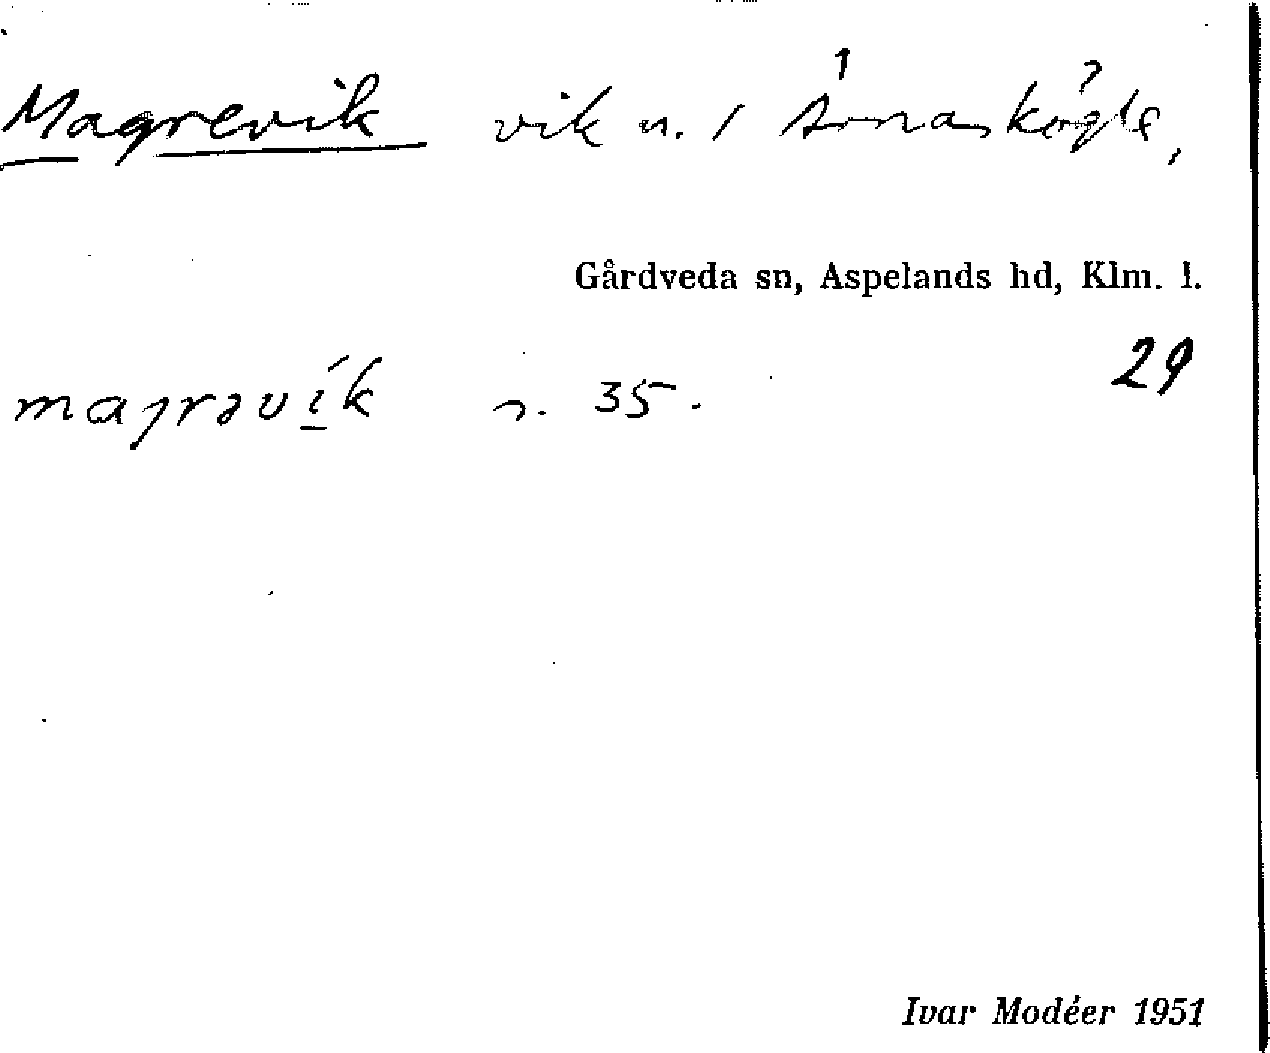 Magrevik vik n. /
Gårdveda sn, Aspelands hd, Klm. l.
29
majrəvík n. 35.
Ivar Modéer 1951